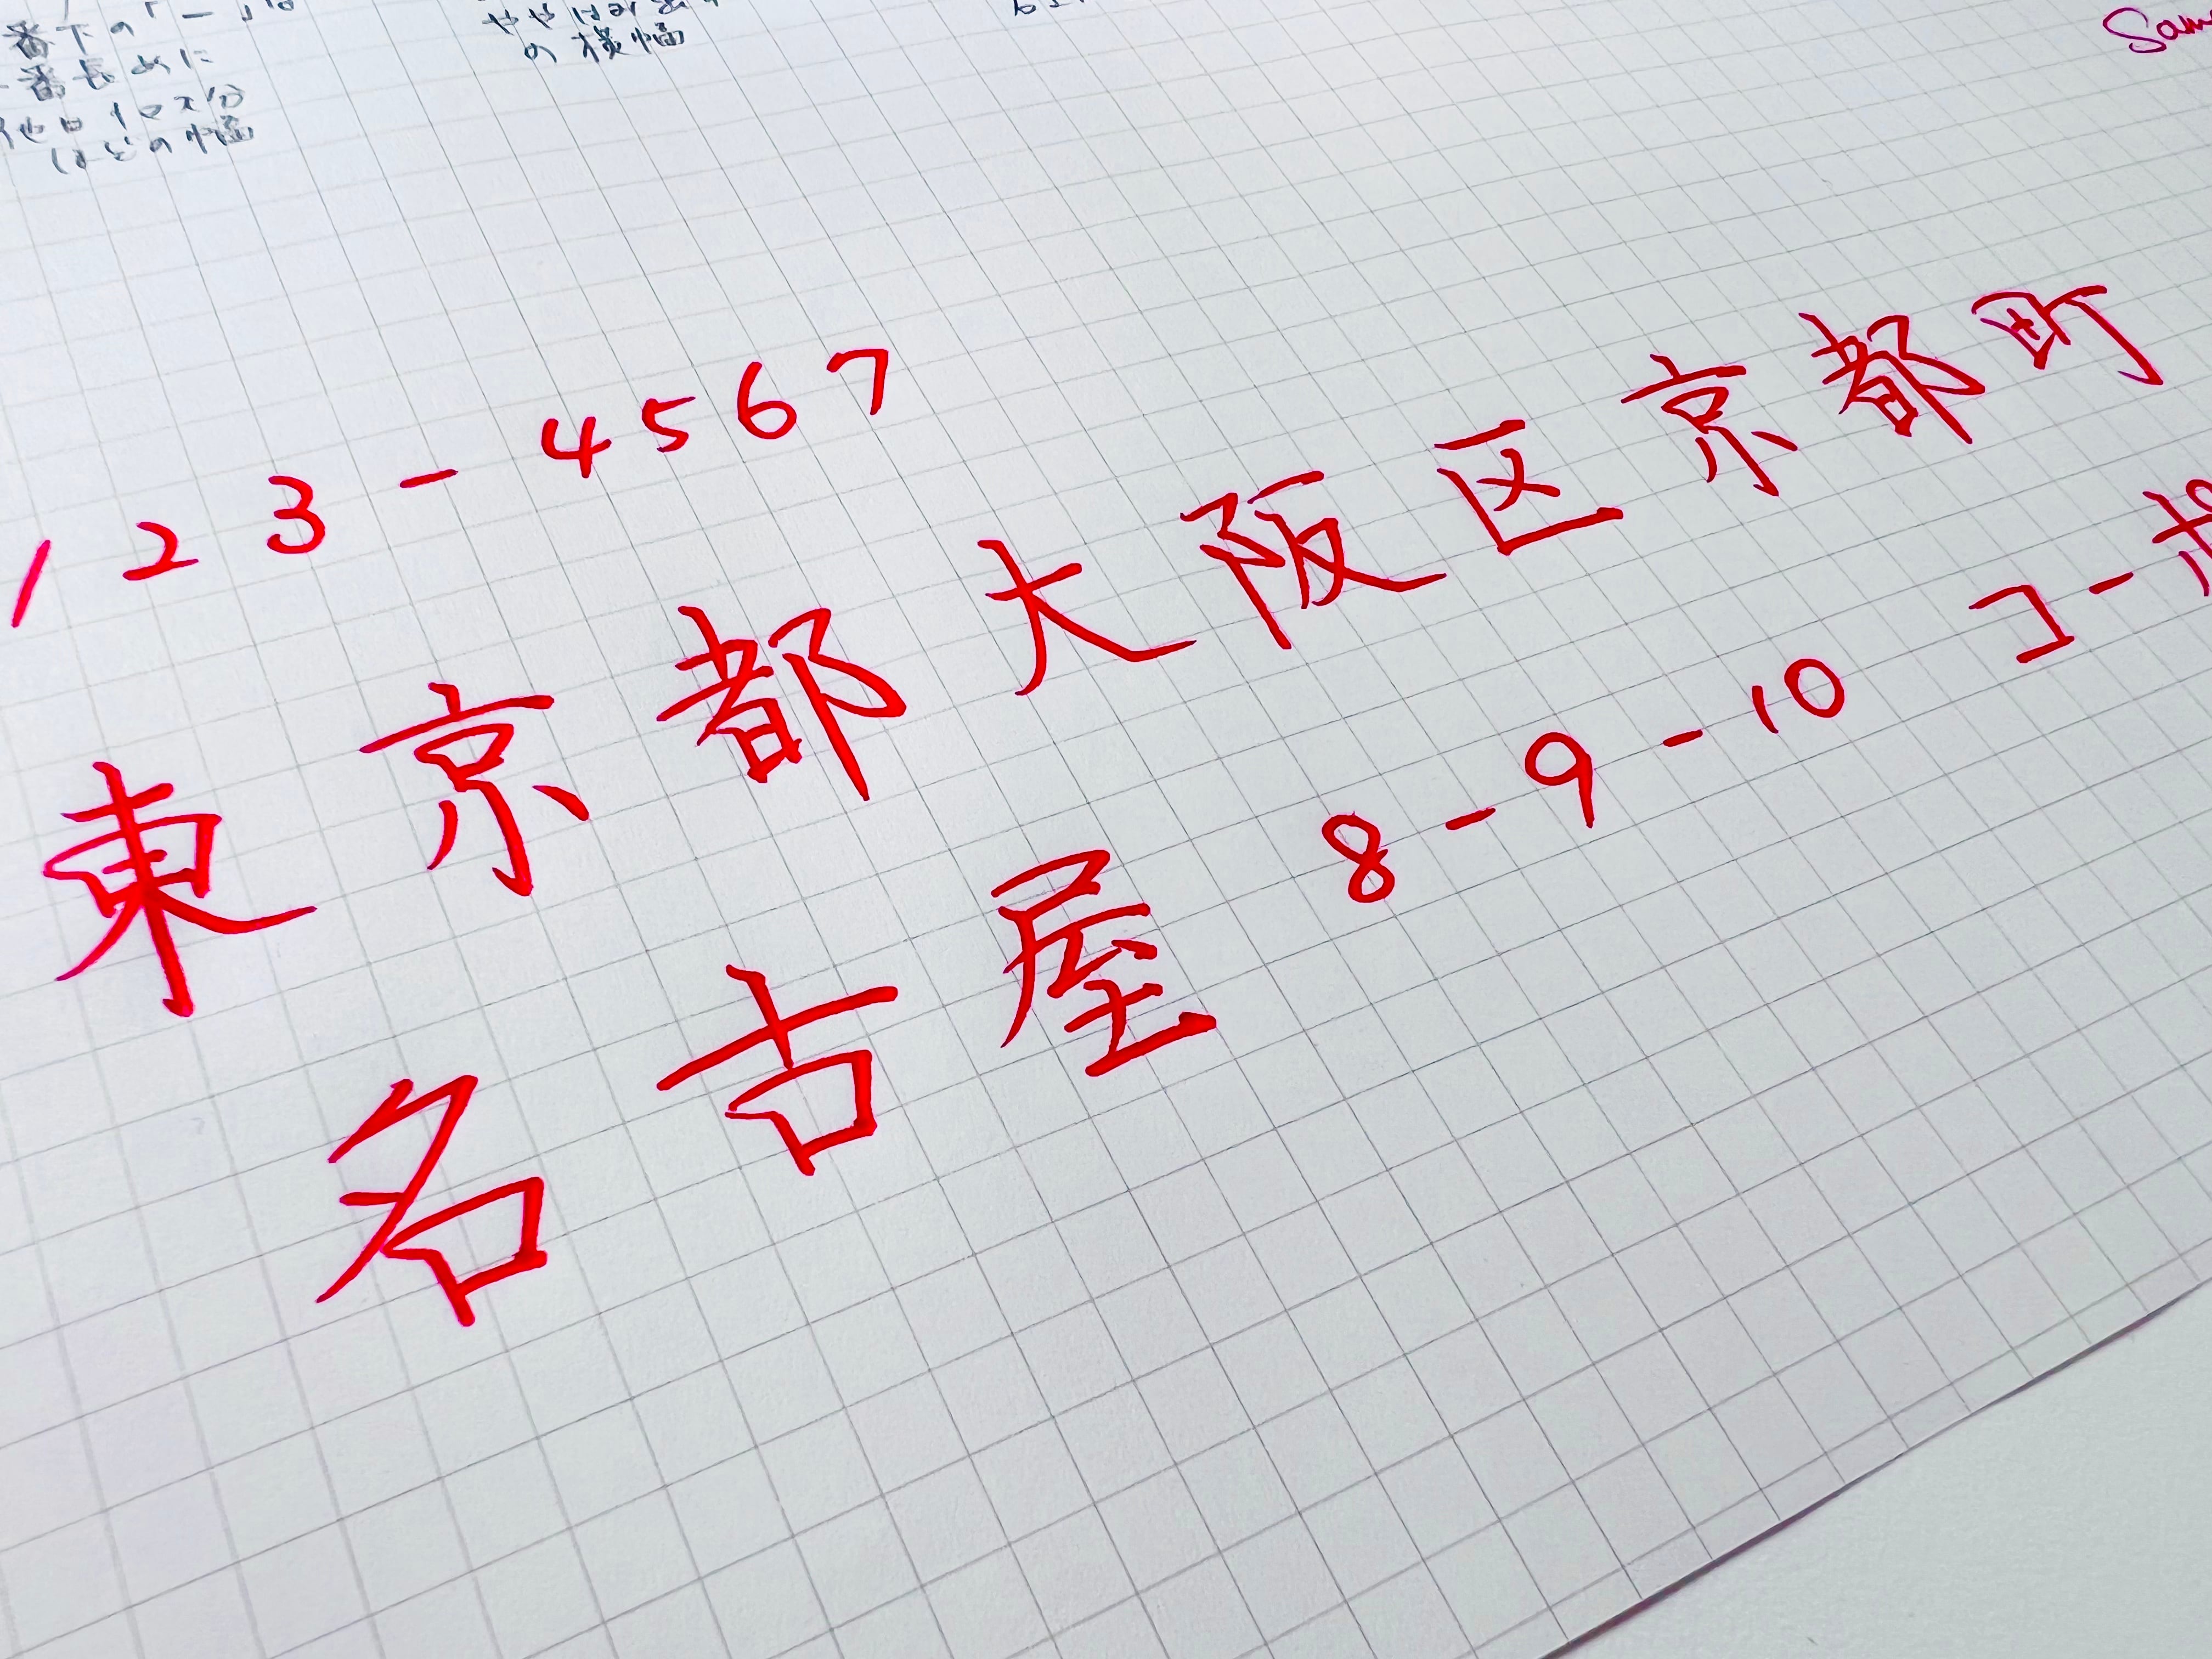 番下の「一」は
番長めに
他は1マス分
ほどの幅
の横幅
Sam
123-4567
東京都大阪区京都町
名古屋 8-9-10 コーポ